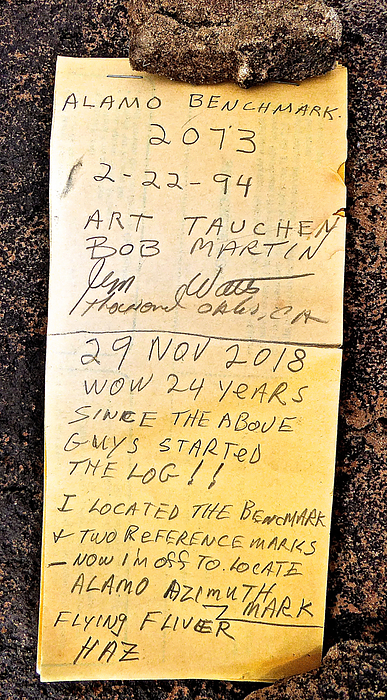 ALAMO BENCHMARK.
2073
2-22-94
ART TAUCHEN
BOB MARTIN
Jim Watts
THOUSAND OAKS, CA
29 NOV 2018
WOW 24 YEARS
SINCE THE ABOVE
GUYS STARTED
THE LOG!!
I LOCATED THE BENCMARK
+ TWO REFERENCE MARKS
- NOW I'M OFF TO LOCATE
ALAMO AZIMUTH
MARK
FLYING FLIVER
HAZ